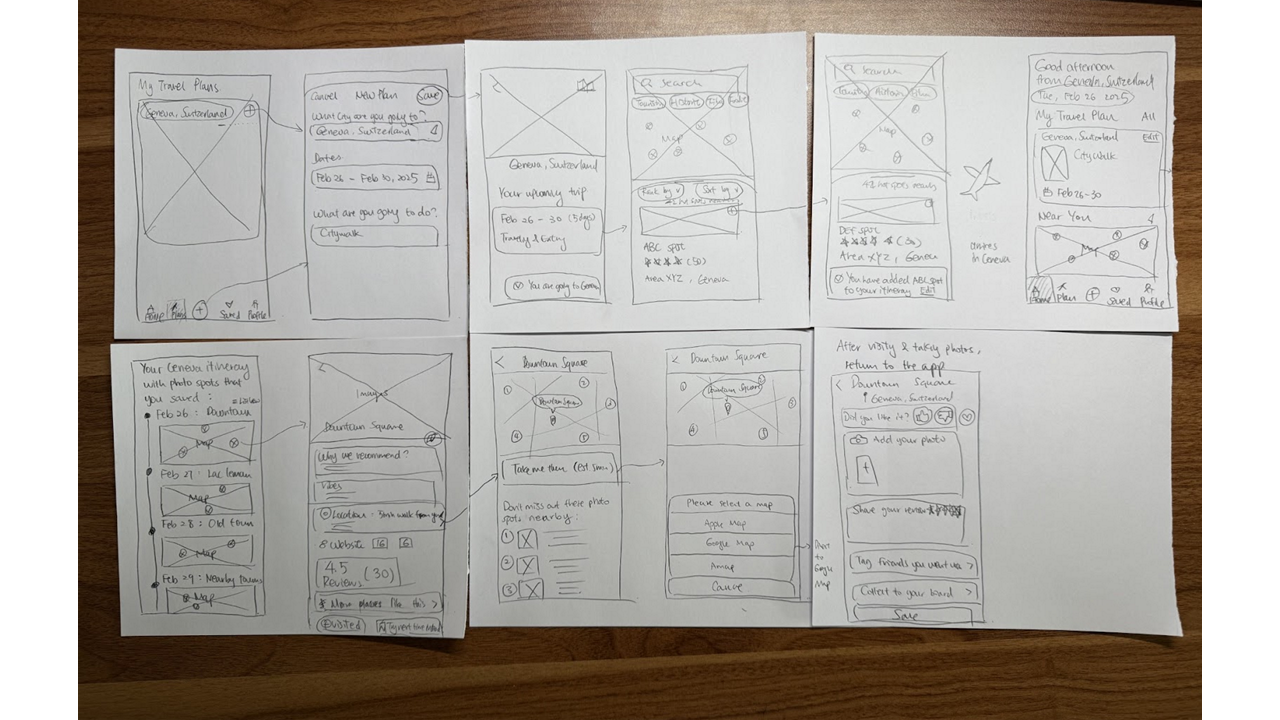 My Travel Plans
Geneva, Switzerland
Home
Plans
Saved
Profile
Cancel New Plan Save
What City are you going to?
Geneva, Switzerland
Dates
Feb 26 - Feb 10, 2025
What are you going to do?
Citywalk
Geneva, Switzerland
Your upcoming trip
Feb 26 - 30 (5 days)
Traveling & Eating
You are going to Geneva
Search
Film
Map
Rank by
Sort by
ABC spot
(50)
Area XYZ, Geneva
Search
Film
Map
DEF spot
(50)
Area XYZ, Geneva
You have added ABC spot
to your itinerary Edit
arrives
in Geneva
Good afternoon
from Geneva, Switzerland
Tue, Feb 26 2025
My Travel Plan All
Geneva, Switzerland Edit
Citywalk
Feb 26-30
Near You
Map
Home Plan Saved Profile
Your Geneva itinerary
with photo spots that
you saved :
Feb 26 : Downtown
Map
Feb 27 : Lac leman
Map
Feb 28 : Old town
Map
Feb 29 : Nearby towns
Map
Images
Downtown Square
Why we recommend?
Vibes
Location -
Website
4.5
Reviews (30)
More places like this >
Visited
Downtown Square
1
2
3
4
5
Downtown Square
Take me there (Est 5min)
Don't miss out these photo
spots nearby :
1
2
3
Downtown Square
Downtown Square
Please select a map
Apple Map
Google Map
Amap
Cancel
Direct
to
Google
Map
After visiting & taking photos,
return to the app
Downtown Square
Geneva, Switzerland
Did you like it?
Add your photo
Share your review
Tag friends you went w >
Collect to your board >
Save